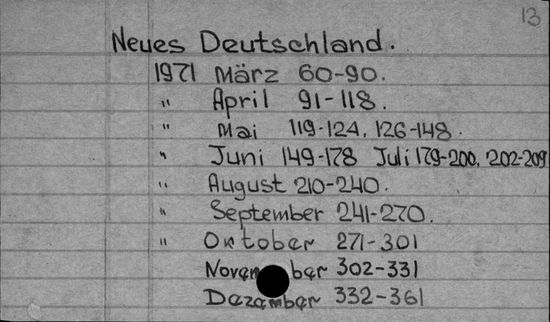 13
Neues Deutschland.
1971 März 60-90.
" April 91-118.
" Mai 119-124, 126-148.
" Juni 149-178 Juli 179-200, 202-209
" August 210-240.
" September 241-270.
" Oktober 271-301
November 302-331
Dezember 332-361